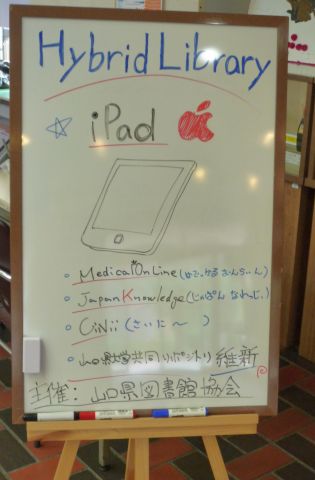 Hybrid Library
☆ iPad
MedicalOnLine(めでぃかる おんらいん)
JapanKnowledge(じゃぱん なれっじ)
CiNii(さいに〜)
山口県大学共同リポジトリ 維新
主催: 山口県図書館協会